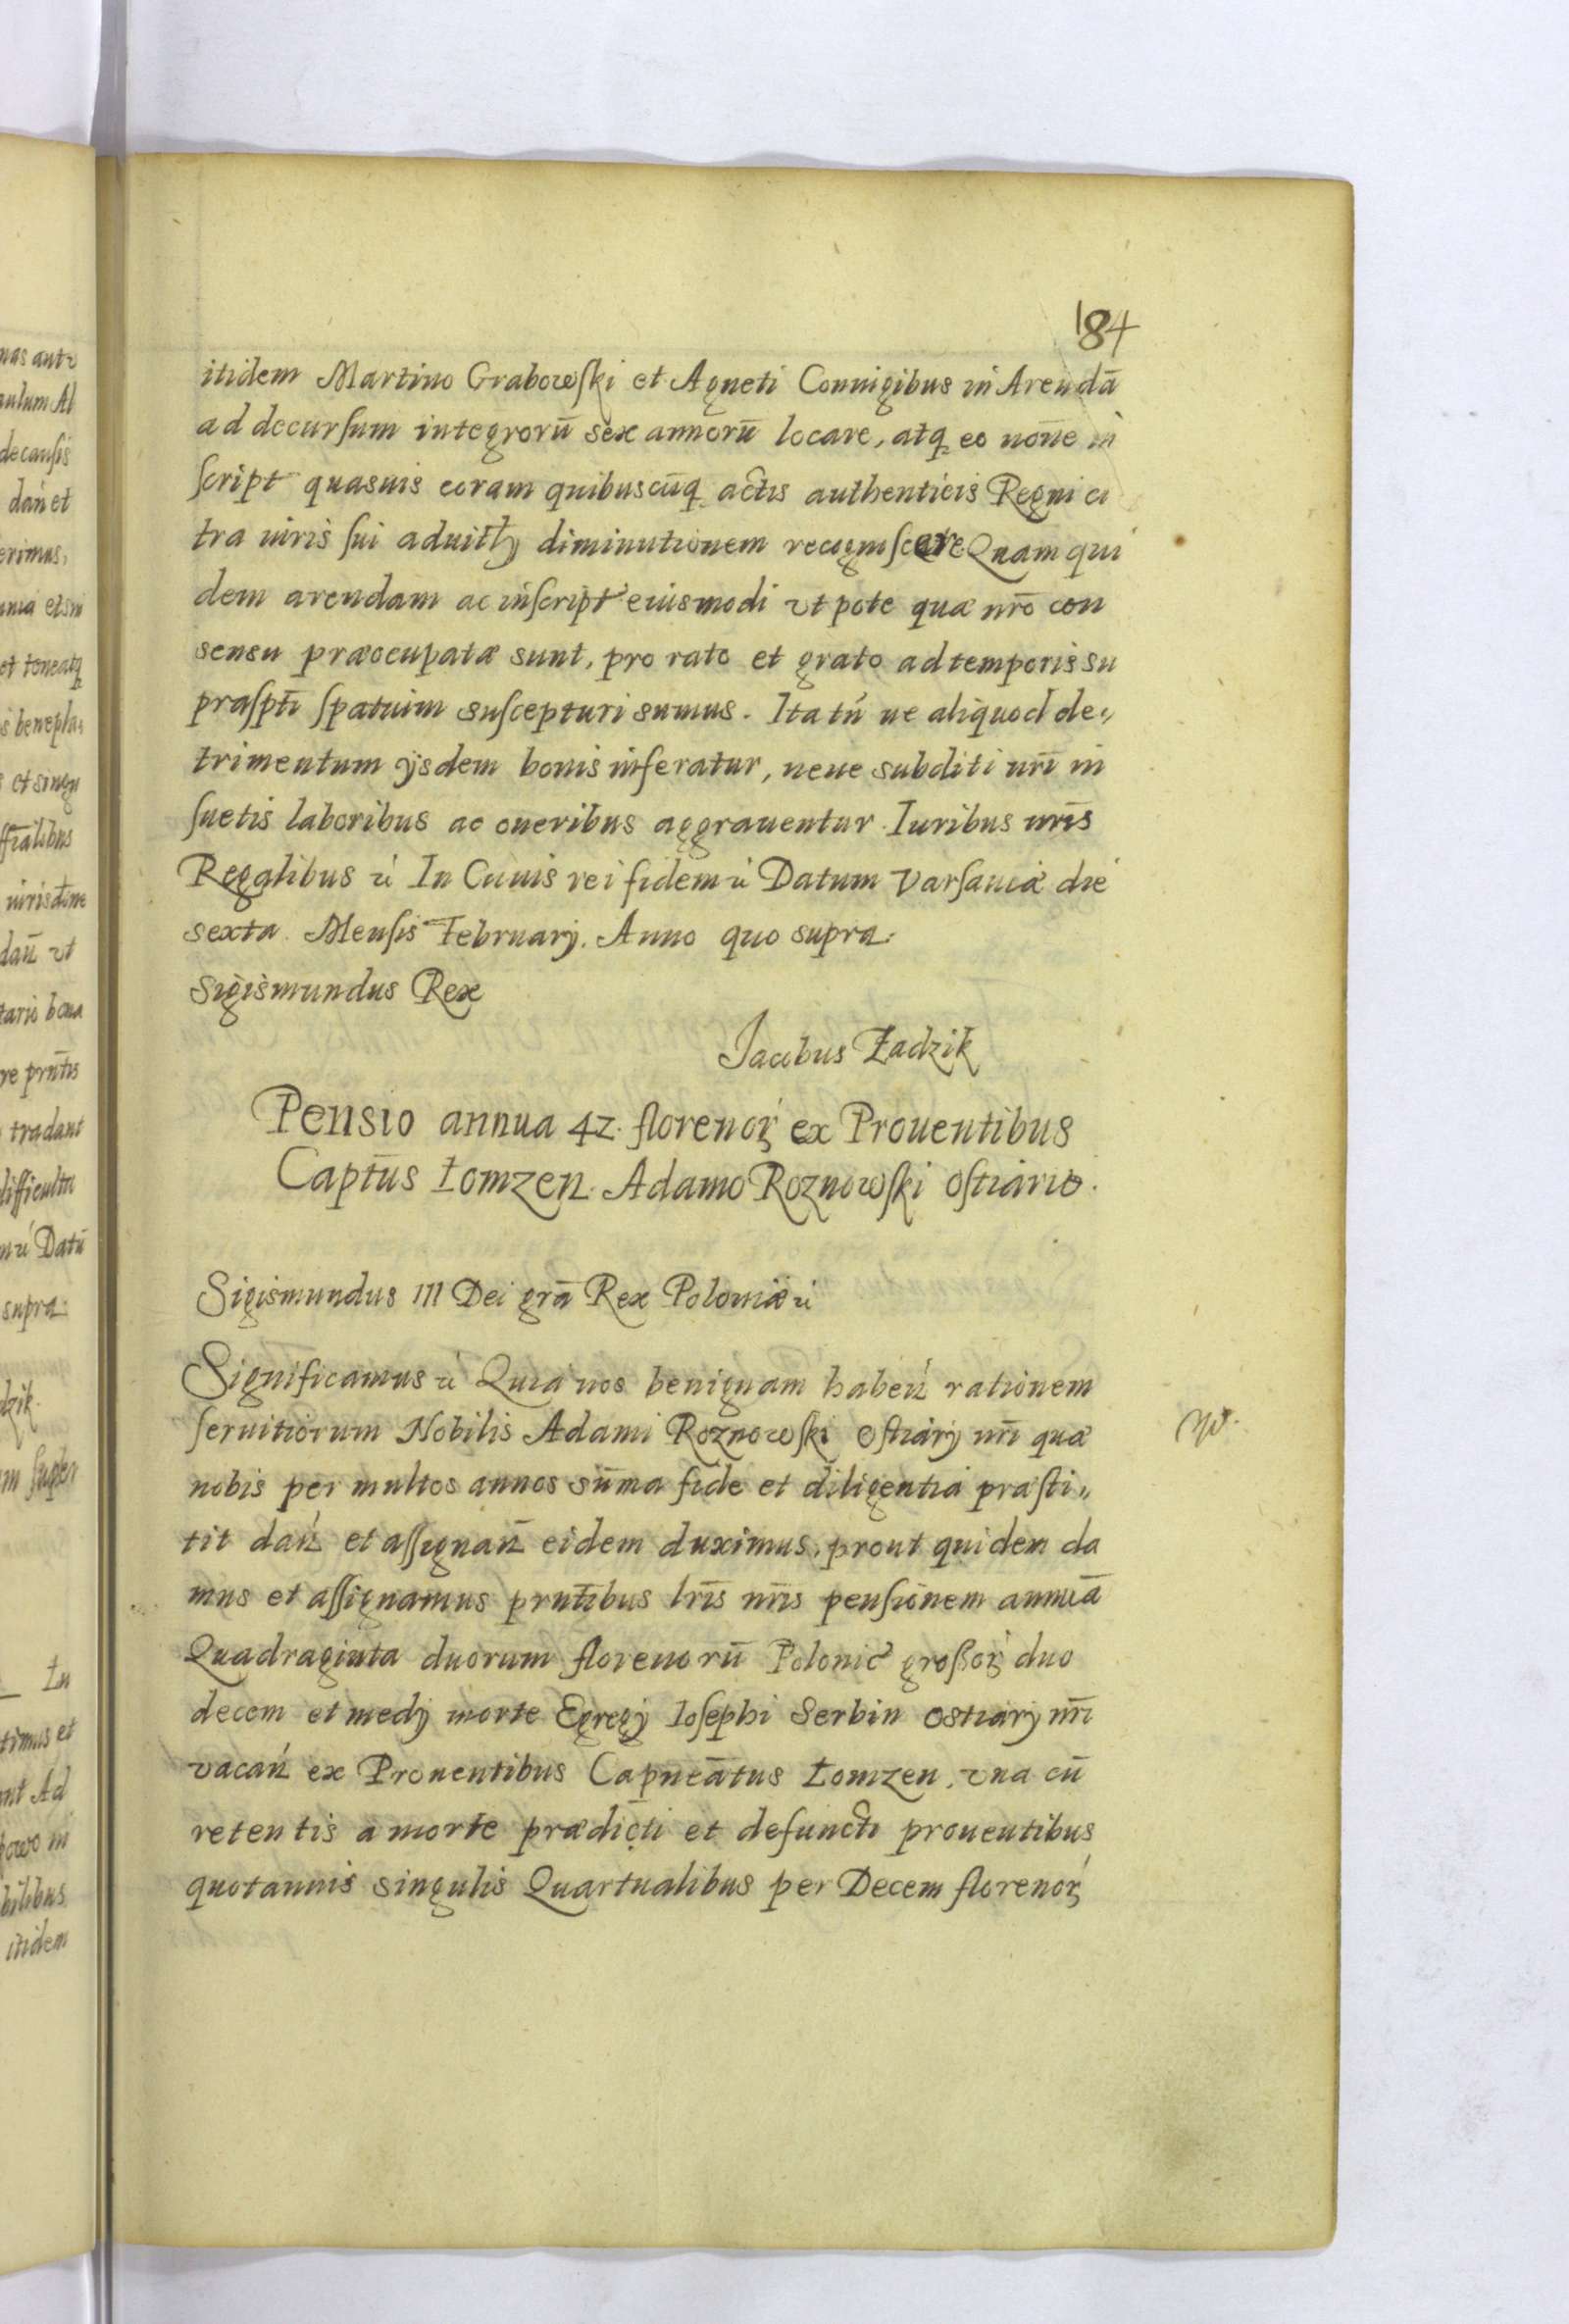 184
itidem Martino Grabowſki et Agneti Coniugibus in Arendā
ad decurſum integrorū sex annorū locare, atq̢ eo noīe in
ſcript quasuis coram quibuscūq̢ actis authenticis Regni ci
tra iuris ſui aduit͞ty diminutionem recognoſcere Quam qui
dem arendam ac inſcript eiusmodi vt pote quæ nr̄o con
sensu præocupatæ sunt, pro rato et grato ad temporis su
praſpti ſpatium suſcepturi sumus. Ita tń ne aliquod de„
trimentum ijsdem bonis inferatur, neue subditi nr̄i in
ſuetis laboribus ac oneribus aggrauentur. Iuribus nr̄is
Regalibus ɛ In Cuius rei fidem ɛ Datum Varſauiæ die
sexta Menſis February. Anno quo supra.
Sigismundus Rex
Jacobus Zadzik
Pensio annua 42. florenoꝝ ex Prouentibus
Captūs Łomzen. Adamo Roznowſki oſtiario.
Sigismundus III Dei grā Rex Poloniæ ɛ
Significamus ɛ Quia nos benignam habeń rationem
ſeruitiorum Nobilis Adami Roznowſki oſtiarij nr̄i quæ
nobis per multos annos sūma fide et diligentia præſti„
tit dań et aſſignań eidem duximus, prout quidem da
mus et aſſignamus prn̄tibus lr̄is nr̄is penſionem annuā
Quadraginta duorum florenorū Polonic großoꝝ duo
decem et medij morte Egregij Ioſephi Serbin ostiarij nr̄i
vacań ex Prouentibus Capneātus Łomzen, vna cū
retentis a morte prædicti et defuncti prouentibus
quotannis singulis Quartualibus per Decem florenoꝝ